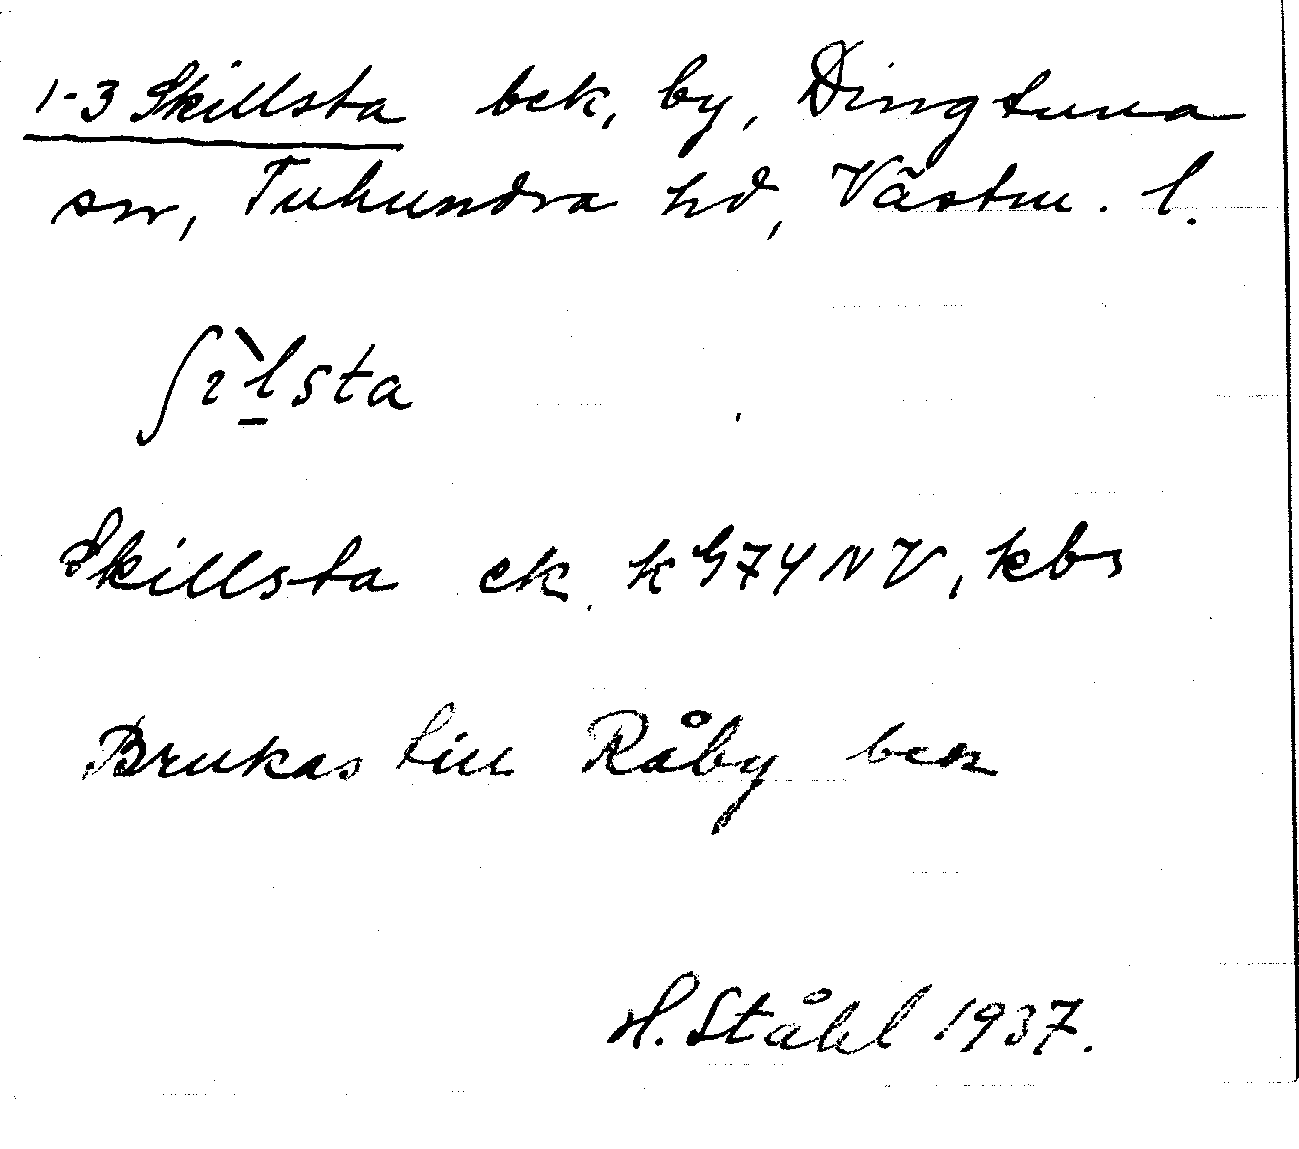 1-3 Skillsta bek, by, Dingtuna
sn, Tuhundra hd, Västm. l.
ʃɪ̀l̠sta
Skillsta ek. kG74NV, kbs
Brukas till Råby bek
H. Ståhl 1937.